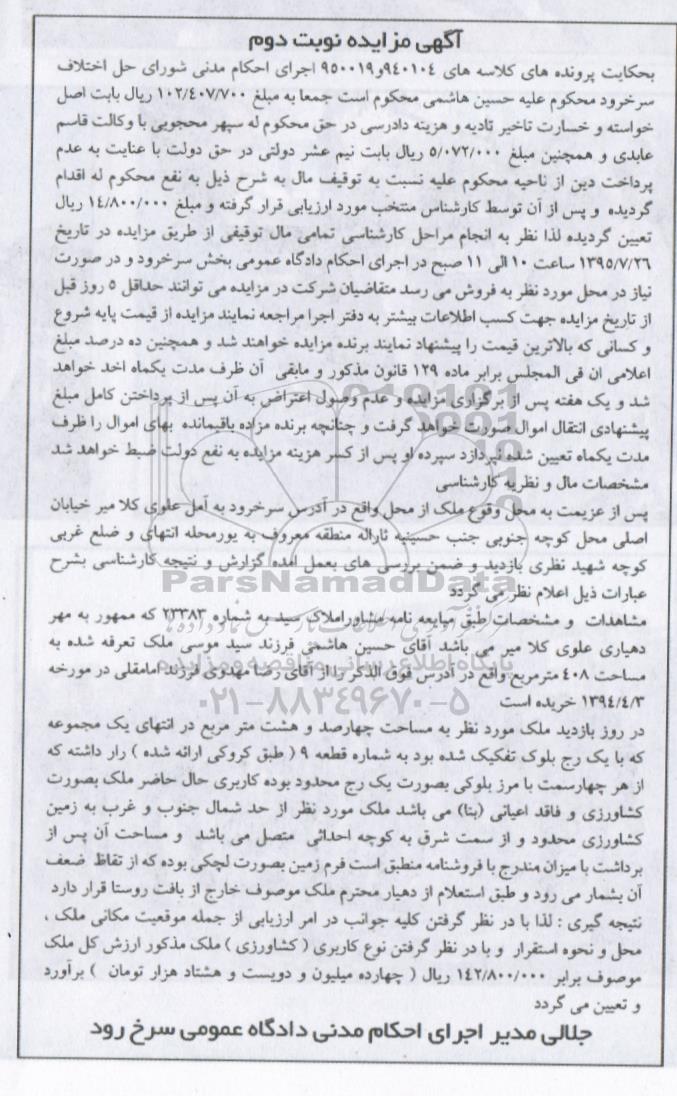 آگهی مزایده نوبت دوم
بحکایت پرونده های کلاسه های ۹۴۰۱۰۴و۹۵۰۰۱۹ اجرای احکام مدنی شورای حل اختلاف
سرخرود محکوم علیه حسین هاشمی محکوم است جمعا به مبلغ ۱۰۲/۴۰۷/۷۰۰ ریال بابت اصل
خواسته و خسارت تاخیر تادیه و هزینه دادرسی در حق محکوم له سپهر محجوبی با وکالت قاسم
عابدی و همچنین مبلغ ۵/۰۷۲/۰۰۰ ریال بابت نیم عشر دولتی در حق دولت با عنایت به عدم
پرداخت دین از ناحیه محکوم علیه نسبت به توقیف مال به شرح ذیل به نفع محکوم له اقدام
گردیده و پس از آن توسط کارشناس منتخب مورد ارزیابی قرار گرفته و مبلغ ۱۴/۸۰۰/۰۰۰ ریال
تعیین گردیده لذا نظر به انجام مراحل کارشناسی تمامی مال توقیفی از طریق مزایده در تاریخ
۱۳۹۵/۷/۲۶ ساعت ۱۰ الی ۱۱ صبح در اجرای احکام دادگاه عمومی بخش سرخرود و در صورت
نیاز در محل مورد نظر به فروش می رسد متقاضیان شرکت در مزایده می توانند حداقل ۵ روز قبل
از تاریخ مزایده جهت کسب اطلاعات بیشتر به دفتر اجرا مراجعه نمایند مزایده از قیمت پایه شروع
و کسانی که بالاترین قیمت را پیشنهاد نمایند برنده مزایده خواهند شد و همچنین ده درصد مبلغ
اعلامی ان فی المجلس برابر ماده ۱۲۹ قانون مذکور و مابقی آن ظرف مدت یکماه اخذ خواهد
شد و یک هفته پس از برگزاری مزایده و عدم وصول اعتراض به آن پس از پرداختن کامل مبلغ
پیشنهادی انتقال اموال صورت خواهد گرفت و چنانچه برنده مزاده باقیمانده بهای اموال را ظرف
مدت یکماه تعیین شده نپردازد سپرده او پس از کسر هزینه مزایده به نفع دولت ضبط خواهد شد
مشخصات مال و نظریه کارشناسی
پس از عزیمت به محل وقوع ملک از محل واقع در آدرس سرخرود به آمل علوی کلا میر خیابان
اصلی محل کوچه جنوبی جنب حسینیه ثاراله منطقه معروف به یورمحله انتهای و ضلع غربی
کوچه شهید نظری بازدید و ضمن بررسی های بعمل آمده گزارش و نتیجه کارشناسی بشرح
عبارات ذیل اعلام نظر می گردد
ParsNamadData
مشاهدات و مشخصات طبق مبایعه نامه مشاوراملاک سید به شماره ۲۳۳۸۳ که ممهور به مهر
دهیاری علوی کلا میر می باشد آقای حسین هاشمی فرزند سید موسی ملک تعرفه شده به
مساحت ۴۰۸ مترمربع واقع در آدرس فوق الذکر را از آقای رضا مهدوی فرزند امامقلی در مورخه
۱۳۹۴/۴/۳ خریده است
۰۲۱-۸۸۳۴۹۶۷۰-۵
در روز بازدید ملک مورد نظر به مساحت چهارصد و هشت متر مربع در انتهای یک مجموعه
که با یک رج بلوک تفکیک شده بود به شماره قطعه ۹ ( طبق کروکی ارائه شده ) رار داشته که
از هر چهارسمت با مرز بلوکی بصورت یک رج محدود بوده کاربری حال حاضر ملک بصورت
کشاورزی و فاقد اعیانی (بنا) می باشد ملک مورد نظر از حد شمال جنوب و غرب به زمین
کشاورزی محدود و از سمت شرق به کوچه احداثی متصل می باشد و مساحت آن پس از
برداشت با میزان مندرج با فروشنامه منطبق است فرم زمین بصورت لچکی بوده که از تقاظ ضعف
آن بشمار می رود و طبق استعلام از دهیار محترم ملک موصوف خارج از بافت روستا قرار دارد
نتیجه گیری : لذا با در نظر گرفتن کلیه جوانب در امر ارزیابی از جمله موقعیت مکانی ملک ،
محل و نحوه استقرار و با در نظر گرفتن نوع کاربری ( کشاورزی ) ملک مذکور ارزش کل ملک
موصوف برابر ۱۴۲/۸۰۰/۰۰۰ ریال ( چهارده میلیون و دویست و هشتاد هزار تومان ) برآورد
و تعیین می گردد
جلالی مدیر اجرای احکام مدنی دادگاه عمومی سرخ رود